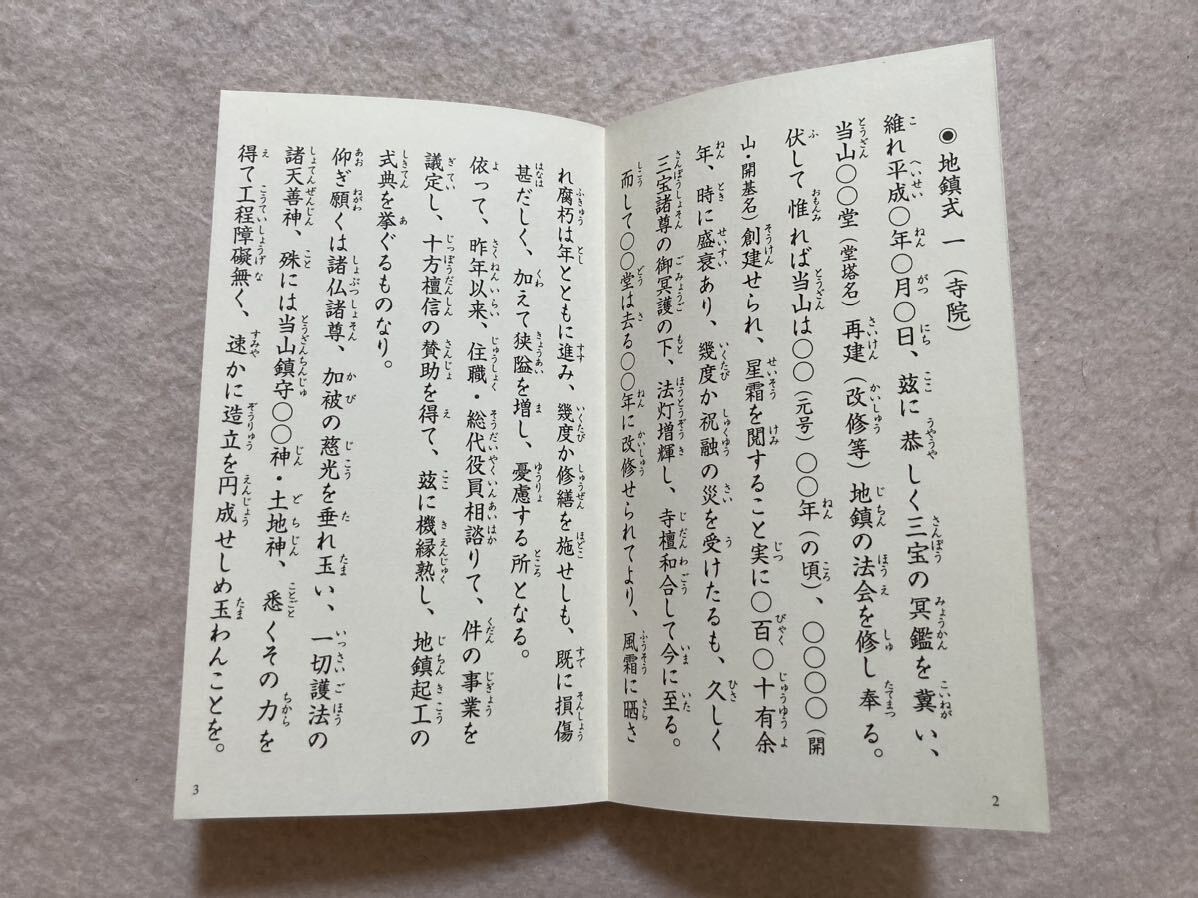 ◉地鎮式 一（寺院）
維れ平成〇年〇月〇日、玆に恭しく三宝の冥鑑を冀い、
当山〇〇堂（堂塔名）再建（改修等）地鎮の法会を修し奉る。
伏して惟れば当山は〇〇（元号）〇〇年（の頃）、〇〇〇〇（開
山・開基名）創建せられ、星霜を閲すること実に〇百〇十有余
年、時に盛衰あり、幾度か祝融の災を受けたるも、久しく
三宝諸尊の御冥護の下、法灯増輝し、寺檀和合して今に至る。
而して〇〇堂は去る〇〇年に改修せられてより、風霜に晒さ
2
れ腐朽は年とともに進み、幾度か修繕を施せしも、既に損傷
甚だしく、加えて狭隘を増し、憂慮する所となる。
依って、昨年以来、住職・総代役員相諮りて、件の事業を
議定し、十方檀信の賛助を得て、玆に機縁熟し、地鎮起工の
式典を挙ぐるものなり。
仰ぎ願くは諸仏諸尊、加被の慈光を垂れ玉い、一切護法の
諸天善神、殊には当山鎮守〇〇神・土地神、悉くその力を
得て工程障礙無く、速かに造立を円成せしめ玉わんことを。
3